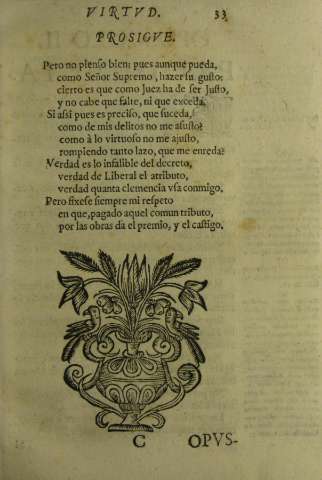 VIRTVD. 33
PROSIGVE.
Pero no pienso bien: pues aunque pueda,
como Señor Supremo, hazer su gusto:
cierto es que como Juez ha de ser Justo,
y no cabe que falte, ni que exceda.
Si assi pues es preciso, que suceda,
como de mis delitos no me asusto?
como à lo virtuoso no me ajusto,
rompiendo tanto lazo, que me enreda?
Verdad es lo infalible del decreto,
verdad de Liberal el atributo,
verdad quanta clemencia vsa conmigo.
Pero fixese siempre mi respeto
en que, pagado aquel comun tributo,
por las obras da el premio, y el castigo.
C OPVS-